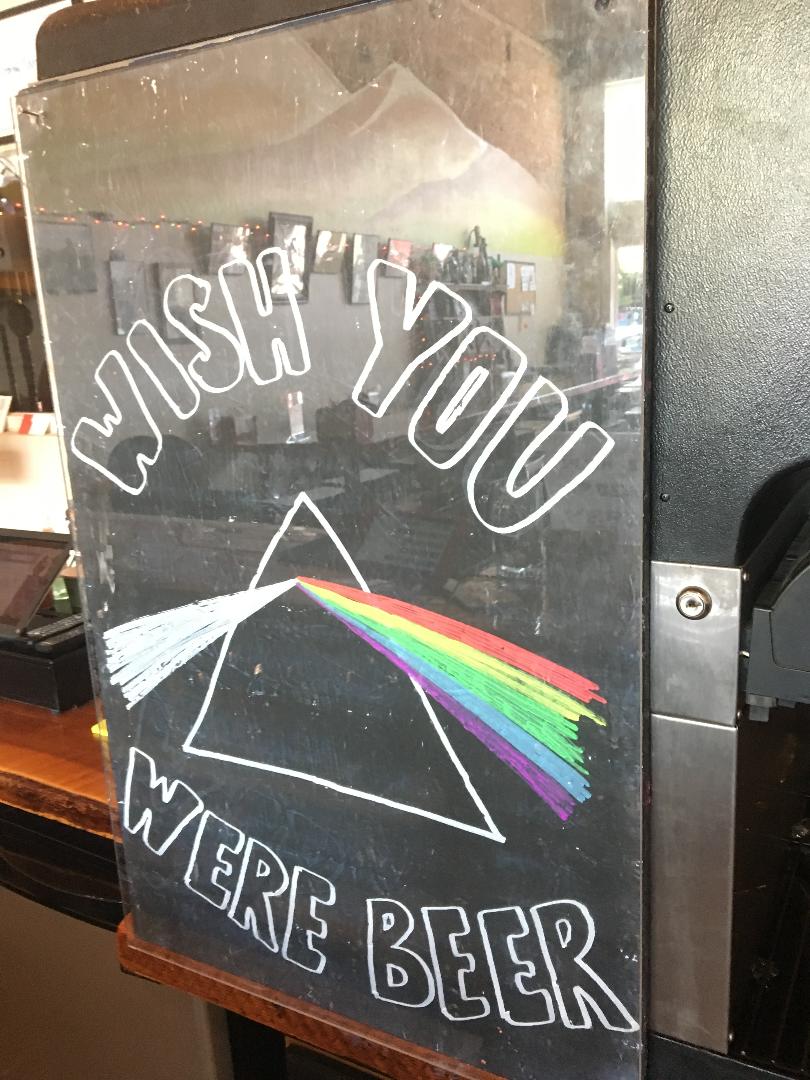 WISH YOU
WERE BEER